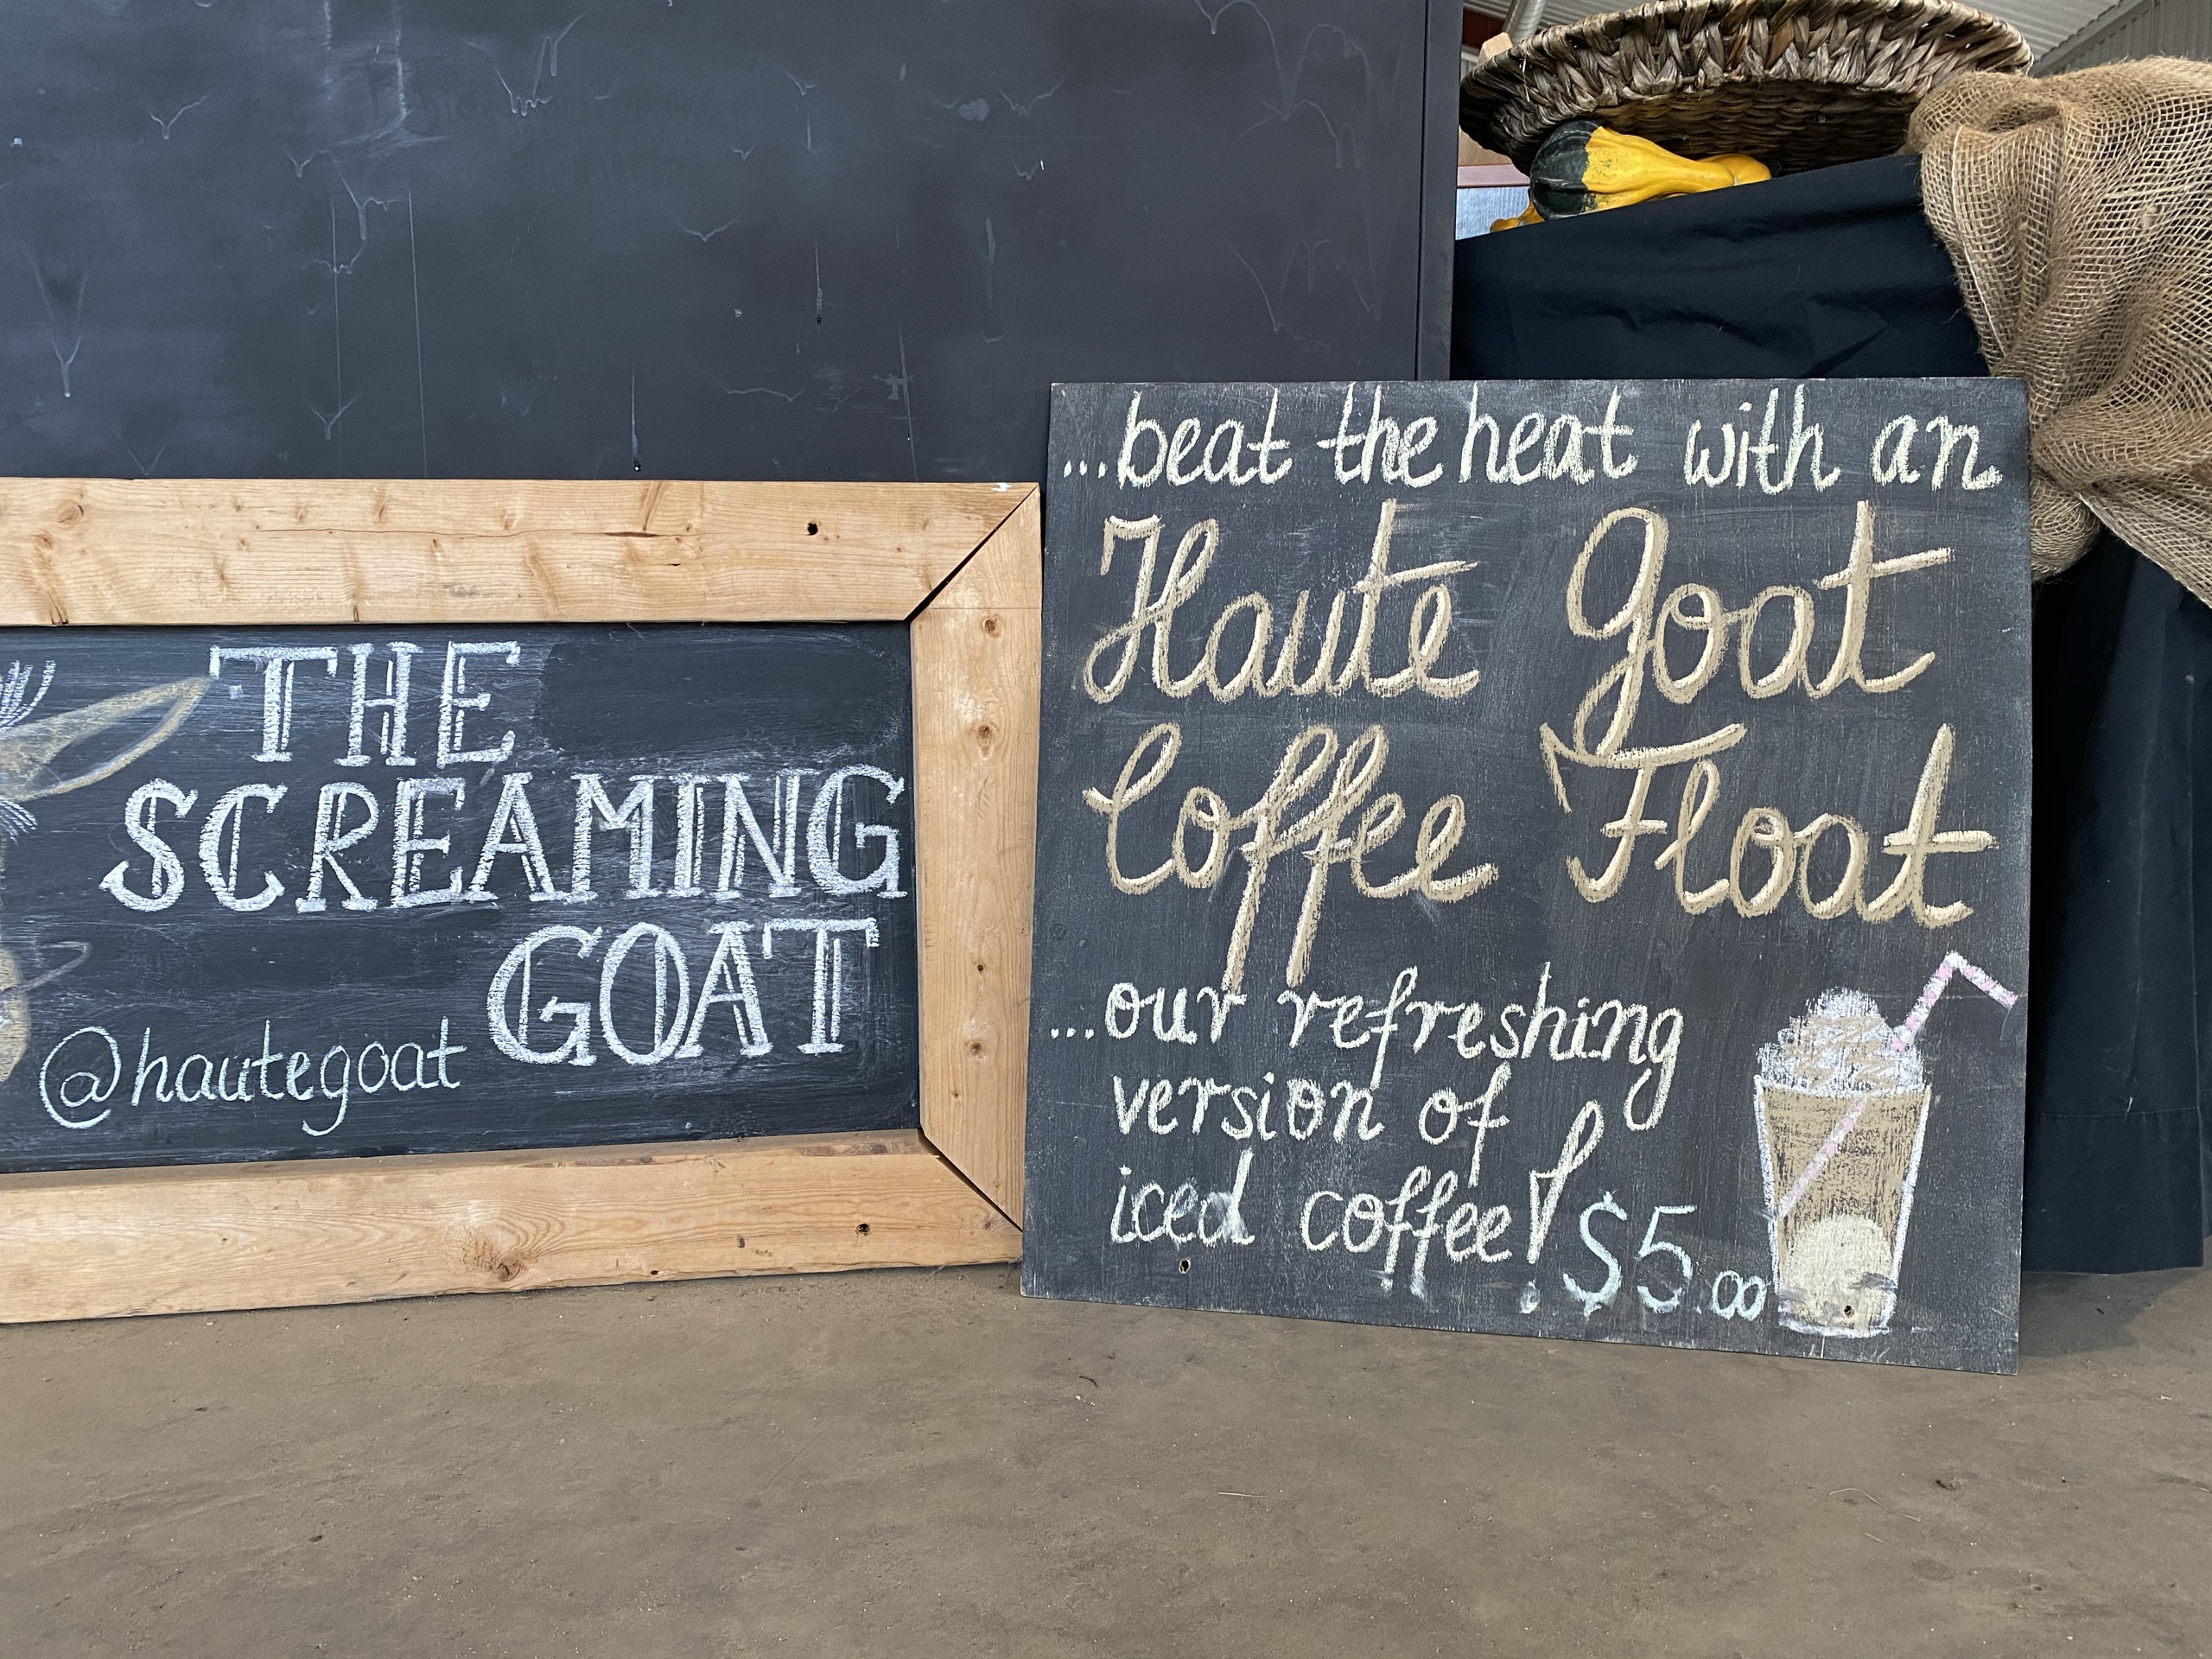 THE
SCREAMING
GOAT
@hautegoat
...beat the heat with an
Haute Goat
Coffee Float
...our refreshing
version of
iced coffee!
$5.00